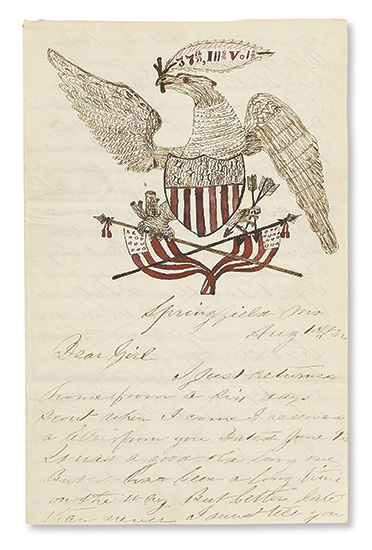 37th, Ills Vols
Springfield Mo
Aug 1st
Dear Girl
I just returned
home from a six days
scout when I came I received
a letter from you Dated June
It was a good old long one
But it had been a long time
on the way. But better late
than never I must tell you